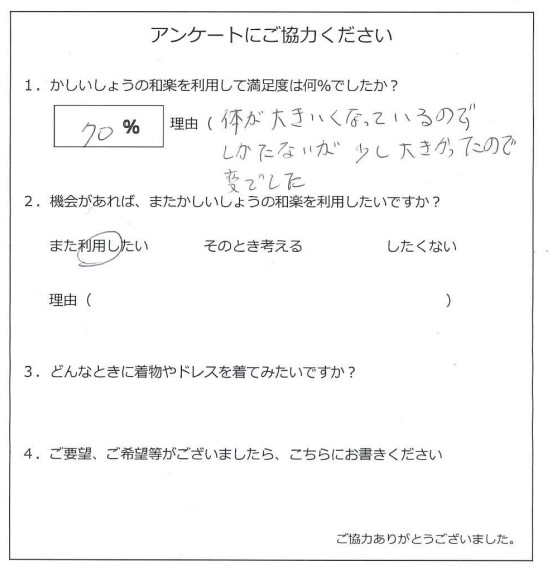 アンケートにご協力ください
1．かしいしょうの和楽を利用して満足度は何%でしたか？
70 % 理由（ 体が大きいくなっているので
しかたないが 少し大きかったので
変でした
2．機会があれば、またかしいしょうの和楽を利用したいですか？
また利用したい そのとき考える したくない
理由（ ）
3．どんなときに着物やドレスを着てみたいですか？
4．ご要望、ご希望等がございましたら、こちらにお書きください
ご協力ありがとうございました。